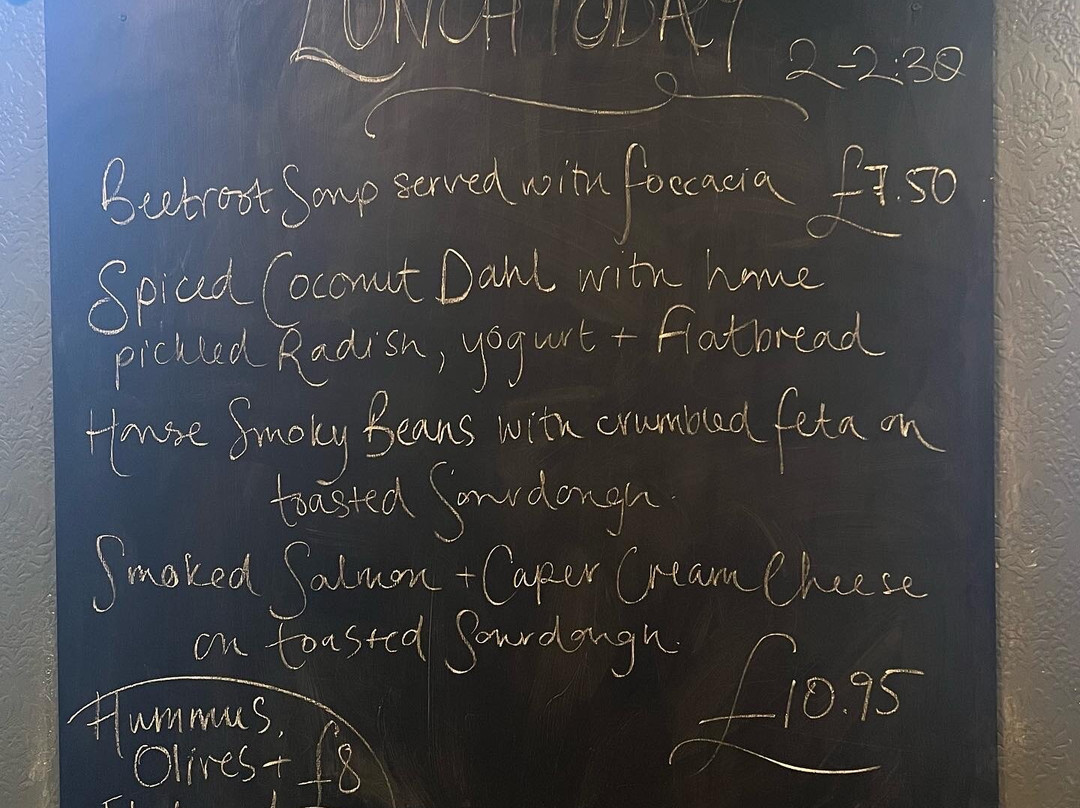 LUNCH TODAY
2-2:30
Beetroot Soup served with foccacia £7.50
Spiced Coconut Dahl with home
pickled Radish, yogurt + flatbread
House Smoky Beans with crumbled feta on
toasted Sourdough.
Smoked Salmon + Caper Cream Cheese
on toasted Sourdough.
£10.95
Hummus,
Olives + £8